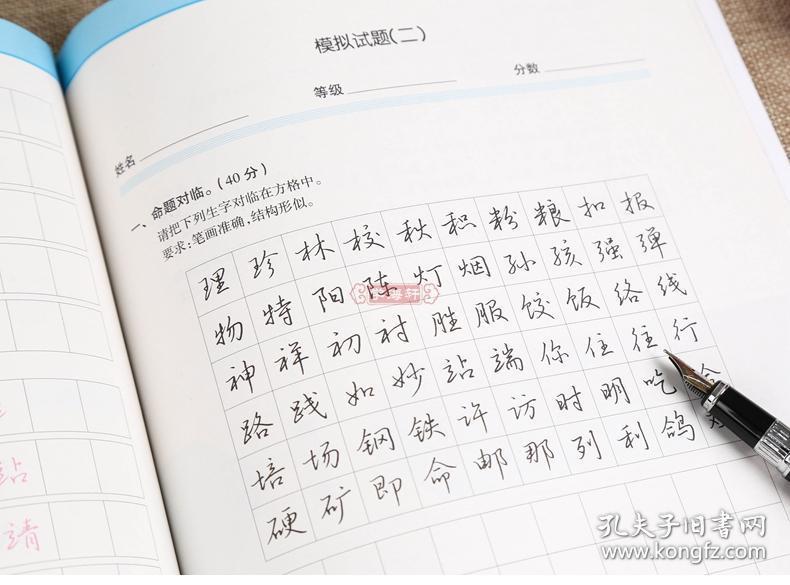 模拟试题(二)
姓名 等级 分数
一、命题对临。(40分)
请把下列生字对临在方格中。
要求:笔画准确,结构形似。
理珍林校秋积粉粮扣报
物特阳陈灯烟孙孩强弹
神祥初衬胜服饺饭络线
路践如妙站端你住往行
培场钢铁许访时明吃
硬矿即命邮那列利鸽
站
靖
孔夫子旧书网
www.kongfz.com